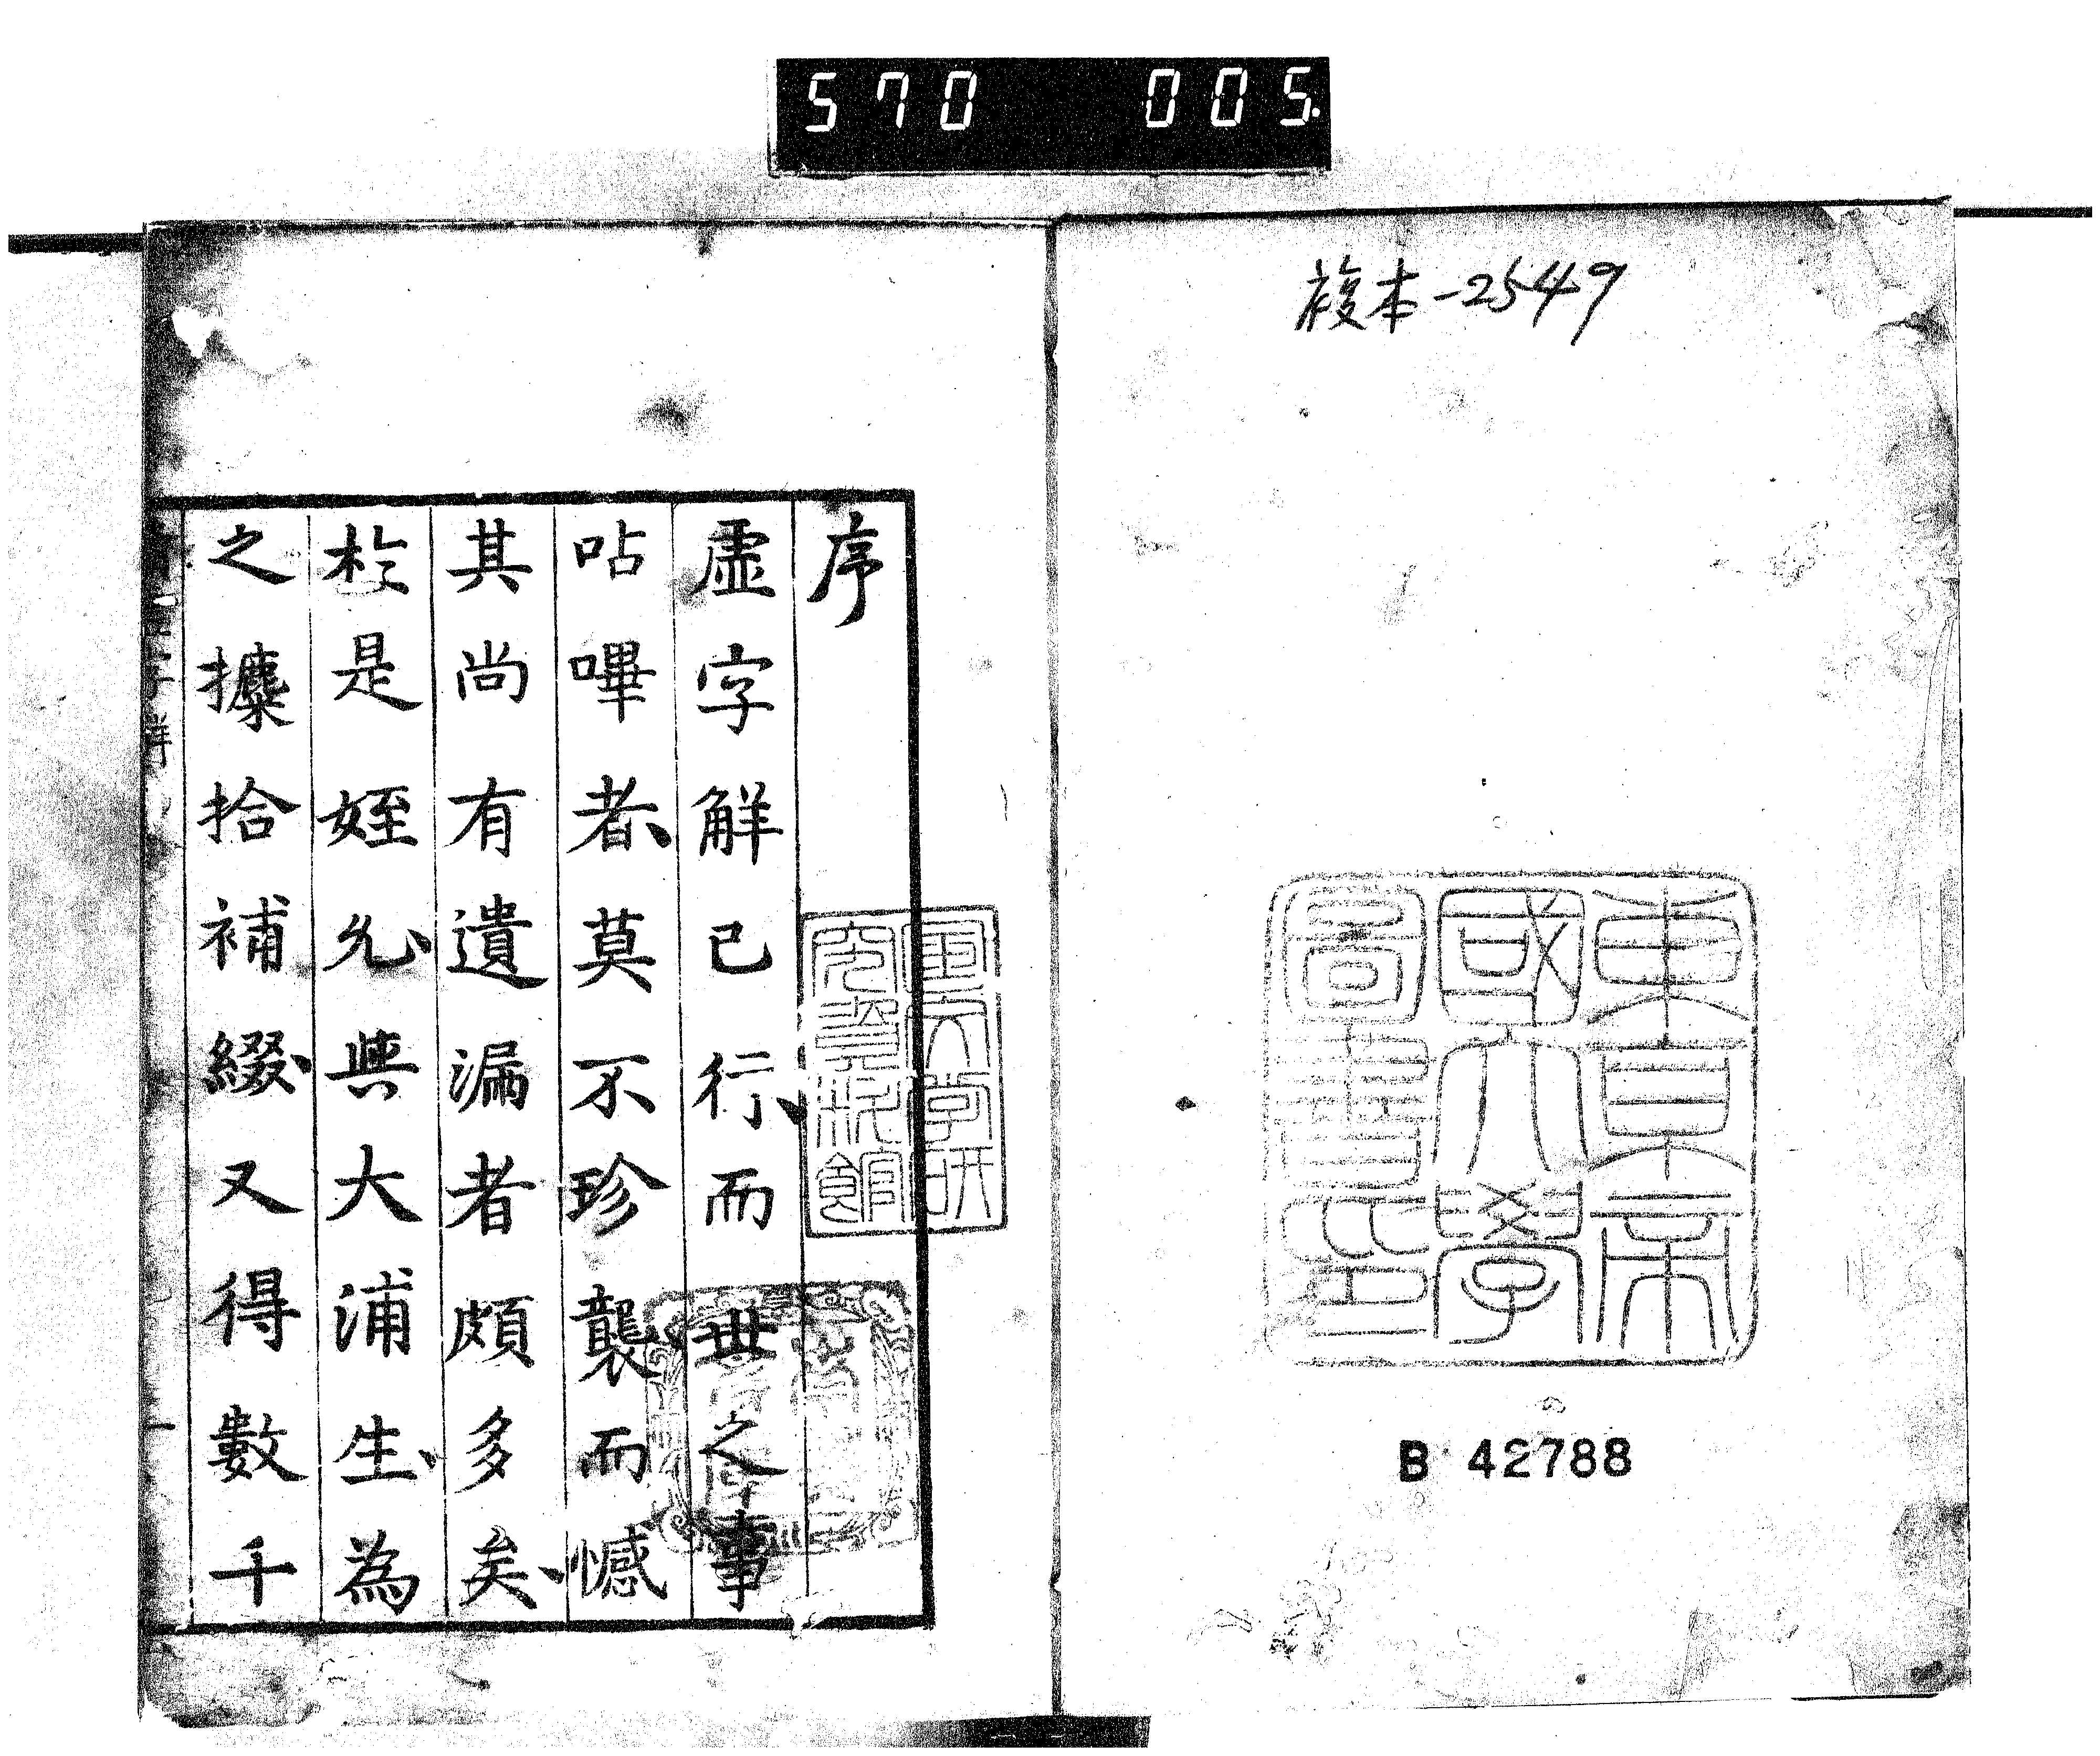 570 005.
複本-2549
東京帝
國大學
圖書印
B 42788
序
虛字解已行、而世之事
呫嗶者、莫不珍襲而憾
其尚有遺漏者頗多矣、
於是姪允、與大浦生、為
之攗拾補綴、又得數千